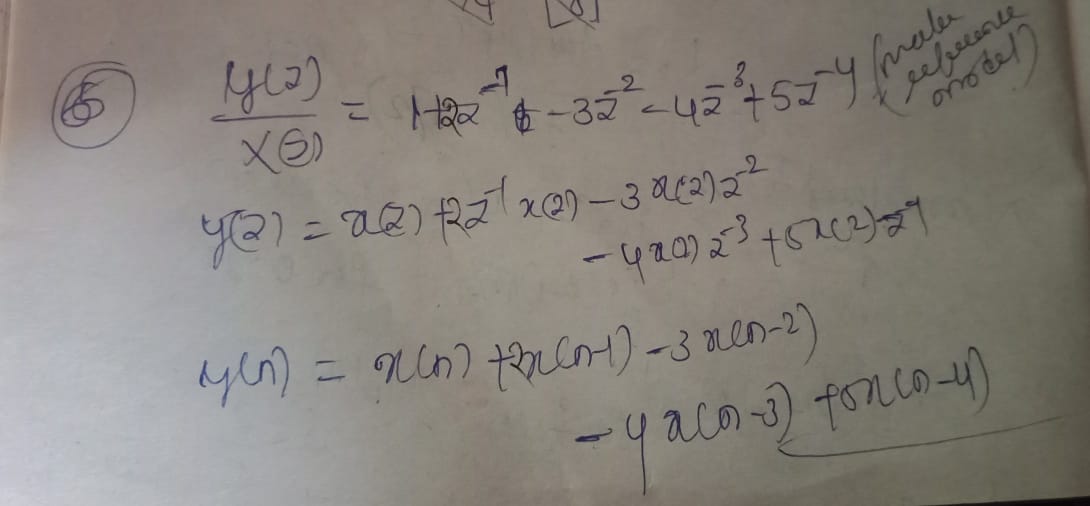 6
y(z)/X(z) = 1+2z^-1 - 3z^-2 - 4z^-3 + 5z^-4 (make
model)
y(z) = x(z) + 2z^-1 x(z) - 3x(z)z^-2
- 4x(z)z^-3 + 5x(z)z^-4
y(n) = x(n) + 2x(n-1) - 3x(n-2)
- 4x(n-3) + 5x(n-4)